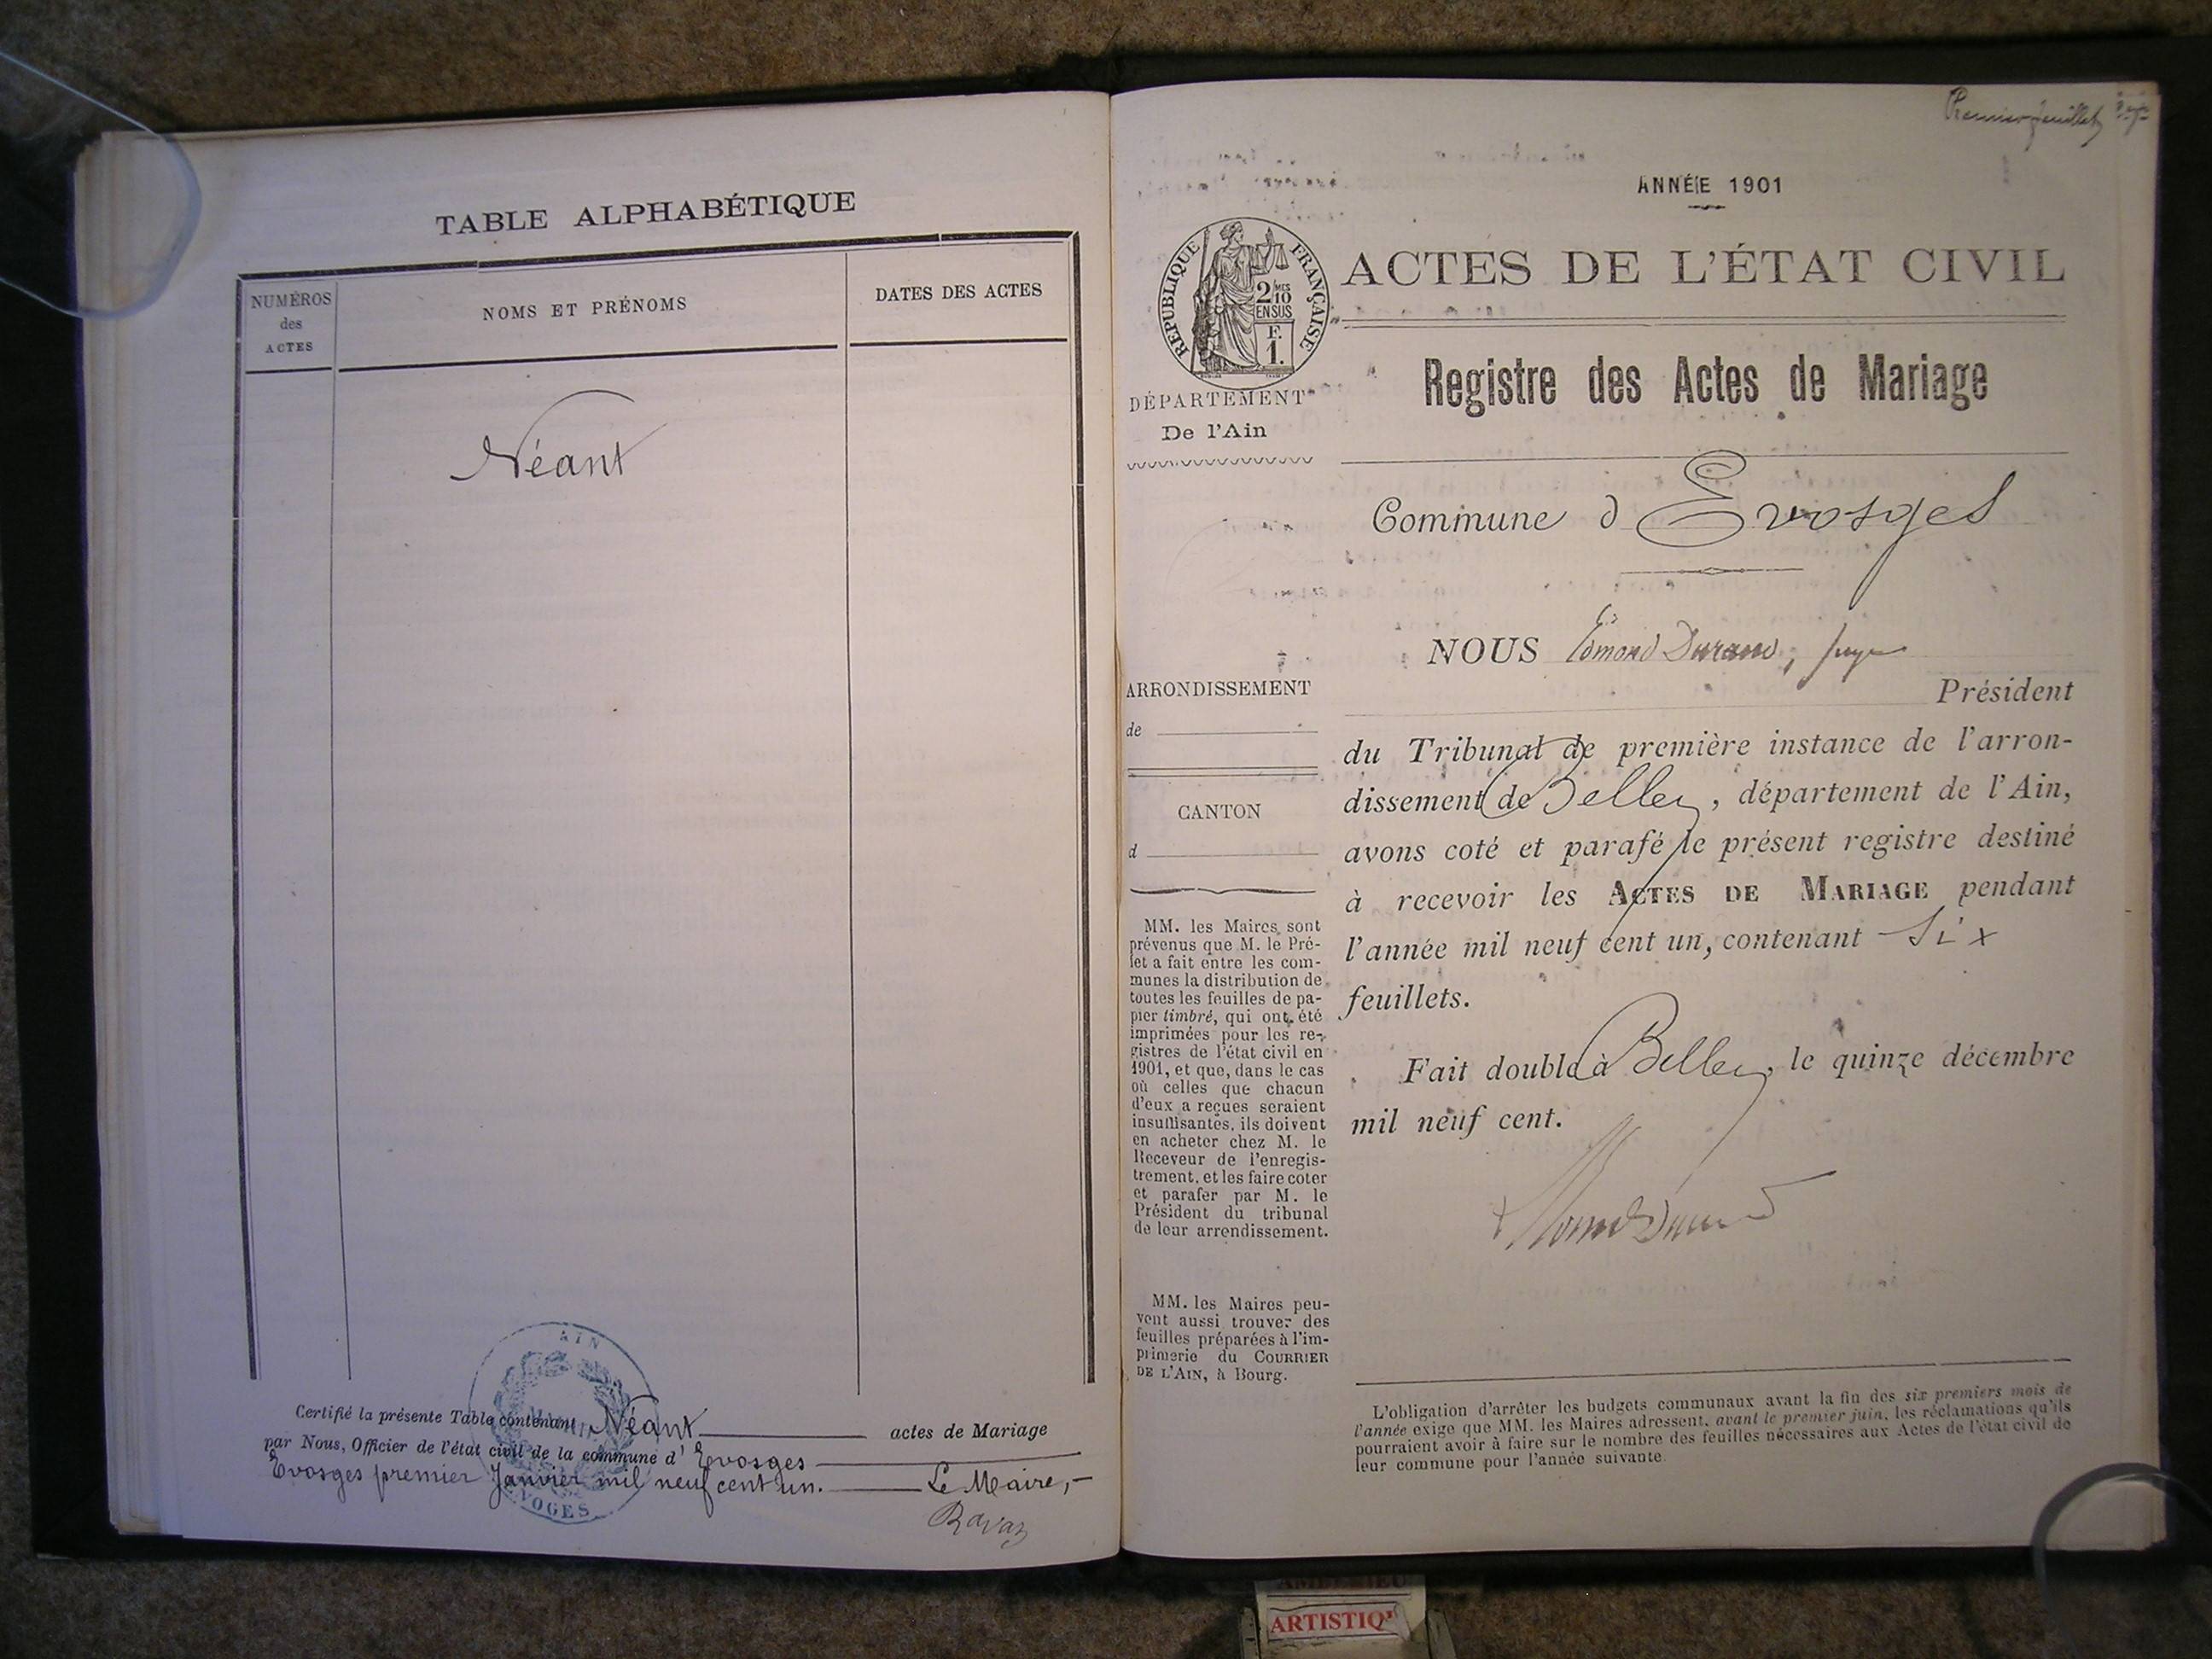 TABLE ALPHABÉTIQUE
NUMÉROS
des
ACTES
NOMS ET PRÉNOMS
DATES DES ACTES
Néant
AIN
Certifié la présente Table contenant Néant actes de Mariage
par Nous, Officier de l'état civil de la commune d' Evosges
Evosges premier Janvier mil neuf cent un. Le Maire,
Ravaz
Premier feuillet
ANNÉE 1901
RÉPUBLIQUE FRANÇAISE
2/10 MES
EN SUS
F.
1.
ACTES DE L'ÉTAT CIVIL
Registre des Actes de Mariage
DÉPARTEMENT
De l'Ain
Commune d Evosges
NOUS Edmond Durand, juge
Président
du Tribunal de première instance de l'arron-
dissement de Belley, département de l'Ain,
avons coté et parafé le présent registre destiné
à recevoir les ACTES DE MARIAGE pendant
l'année mil neuf cent un, contenant Six
feuillets.
Fait double à Belley, le quinze décembre
mil neuf cent.
ARRONDISSEMENT
de
CANTON
d
MM. les Maires sont
prévenus que M. le Pré-
fet a fait entre les com-
munes la distribution de
toutes les feuilles de pa-
pier timbré, qui ont été
imprimées pour les re-
gistres de l'état civil en
1901, et que, dans le cas
où celles que chacun
d'eux a reçues seraient
insuffisantes, ils doivent
en acheter chez M. le
Receveur de l'enregis-
trement, et les faire coter
et parafer par M. le
Président du tribunal
de leur arrendissement.
MM. les Maires peu-
vent aussi trouver des
feuilles préparées à l'im-
primerie du COURRIER
DE L'AIN, à Bourg.
L'obligation d'arrêter les budgets communaux avant la fin des six premiers mois de
l'année exige que MM. les Maires adressent, avant le premier juin, les réclamations qu'ils
pourraient avoir à faire sur le nombre des feuilles nécessaires aux Actes de l'état civil de
leur commune pour l'année suivante.
ARTISTIQ